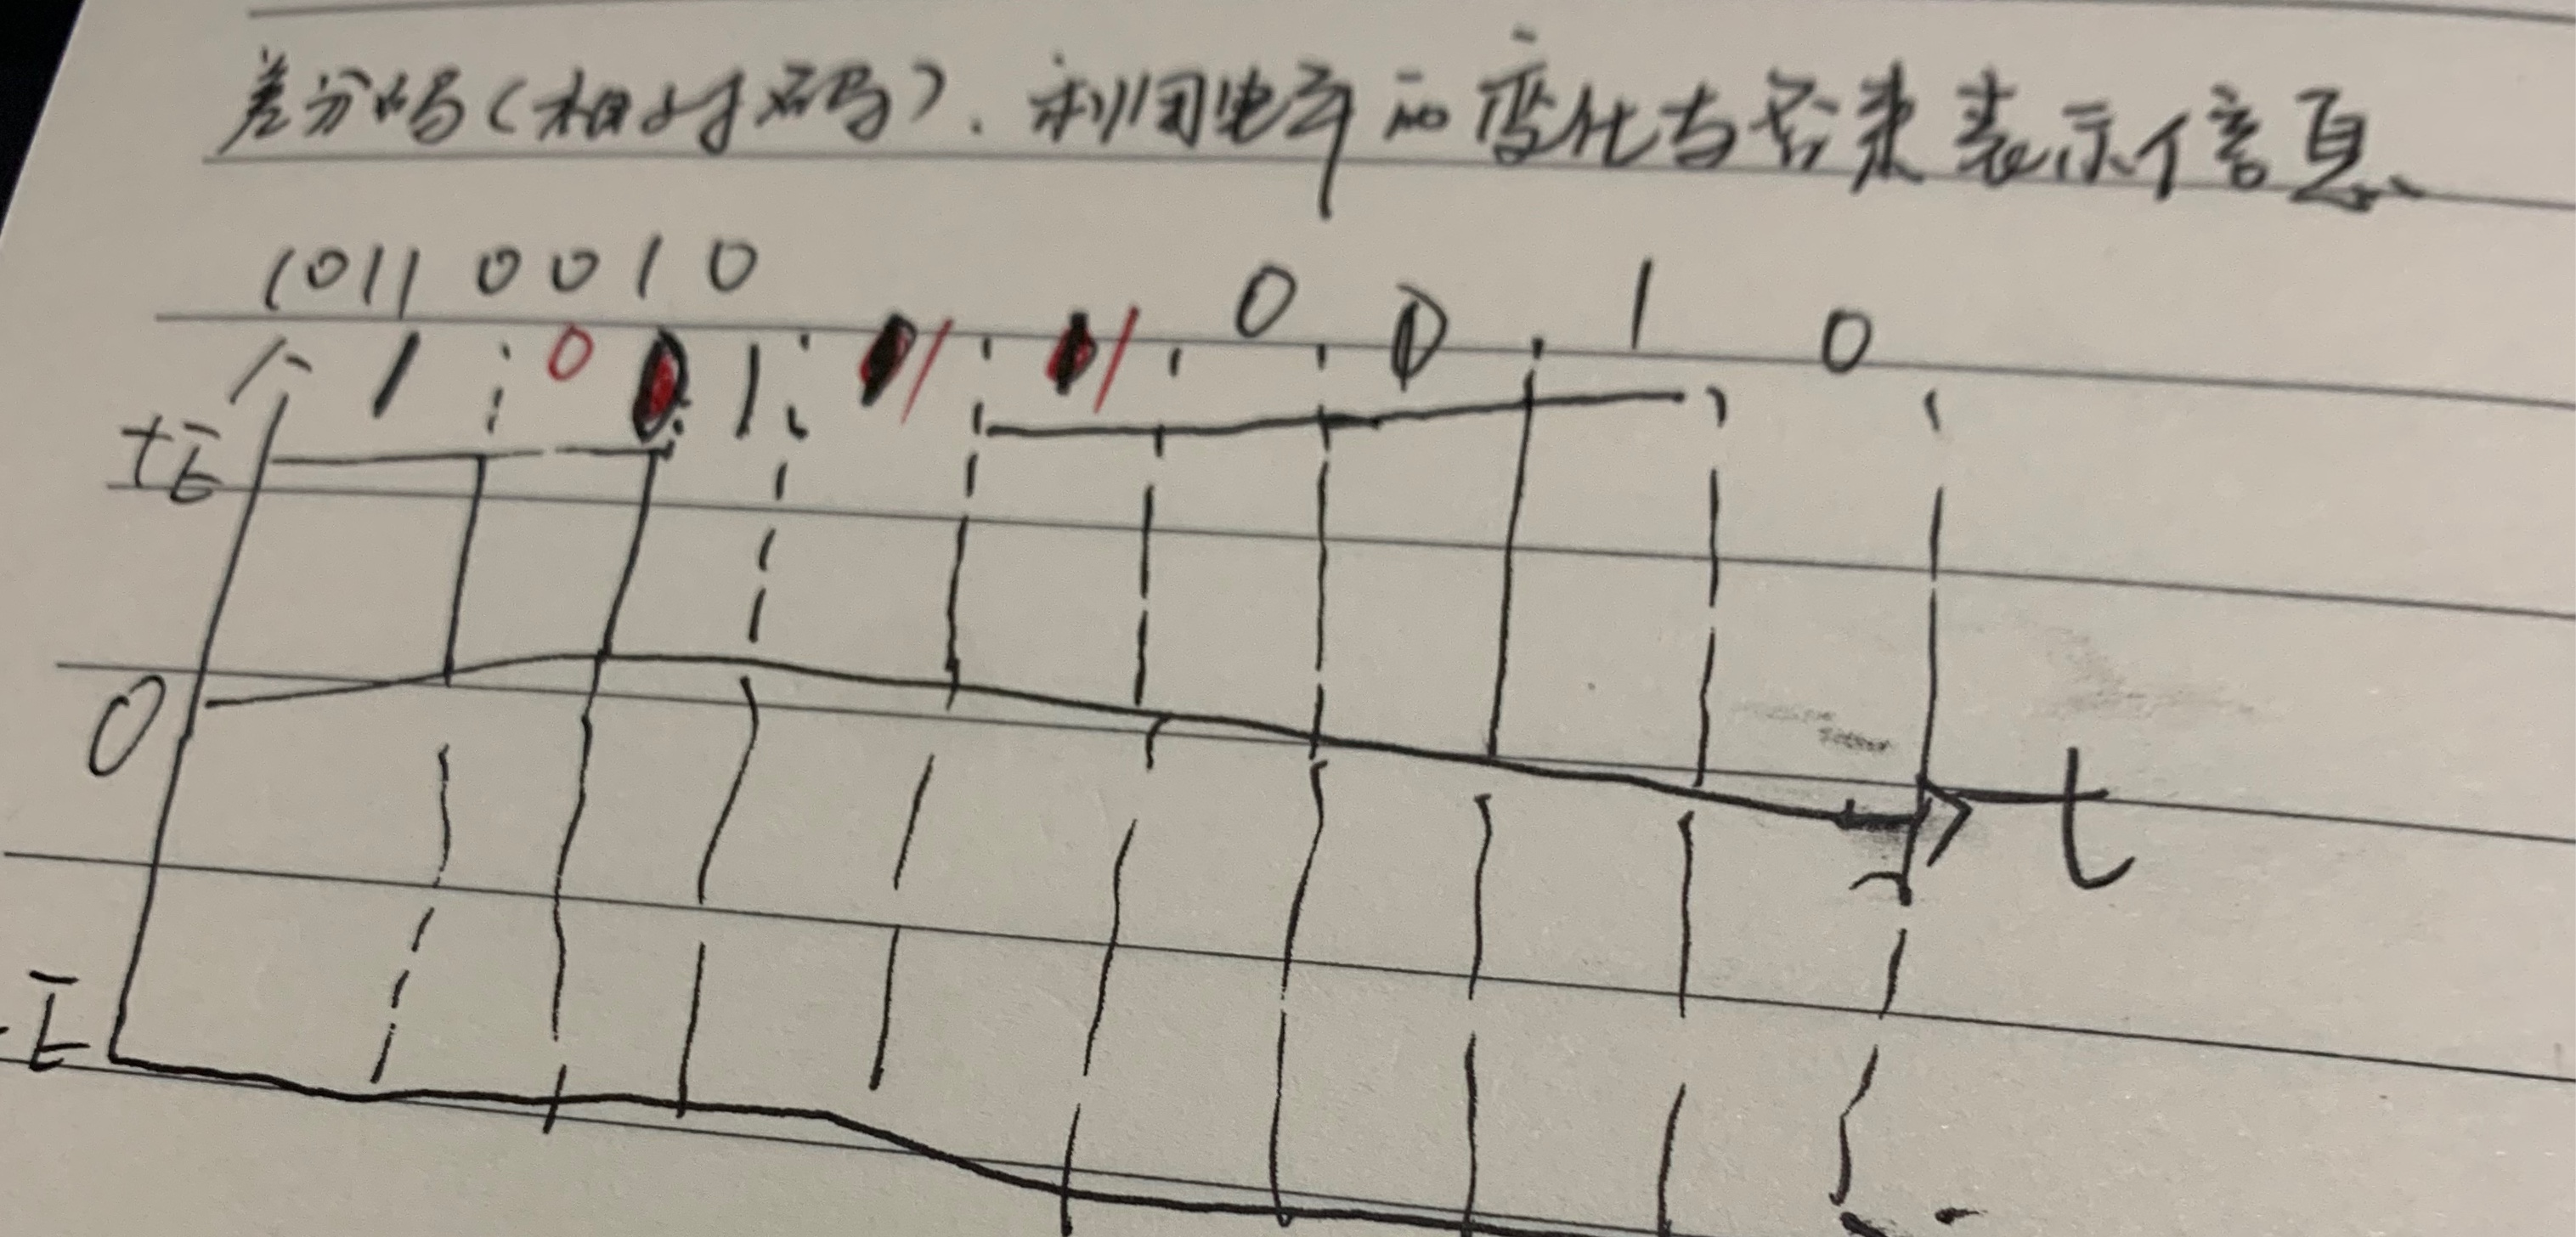 差分码(相对码).利用电平的变化与否来表示信息
10110010
1 0 1 1 1 0 0 1 0
+E
0
t
-E